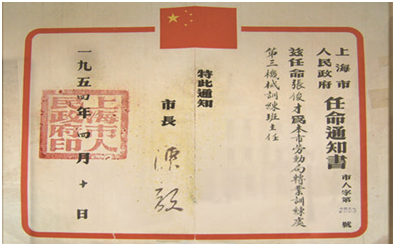 上海市
人民政府
任命通知書
市人字第 號
茲任命張俊才爲本市勞動局轉業訓練處
第三機械訓練班主任
特此通知
市長 陳毅
一九五四年四月十日
上海市人
民政府印